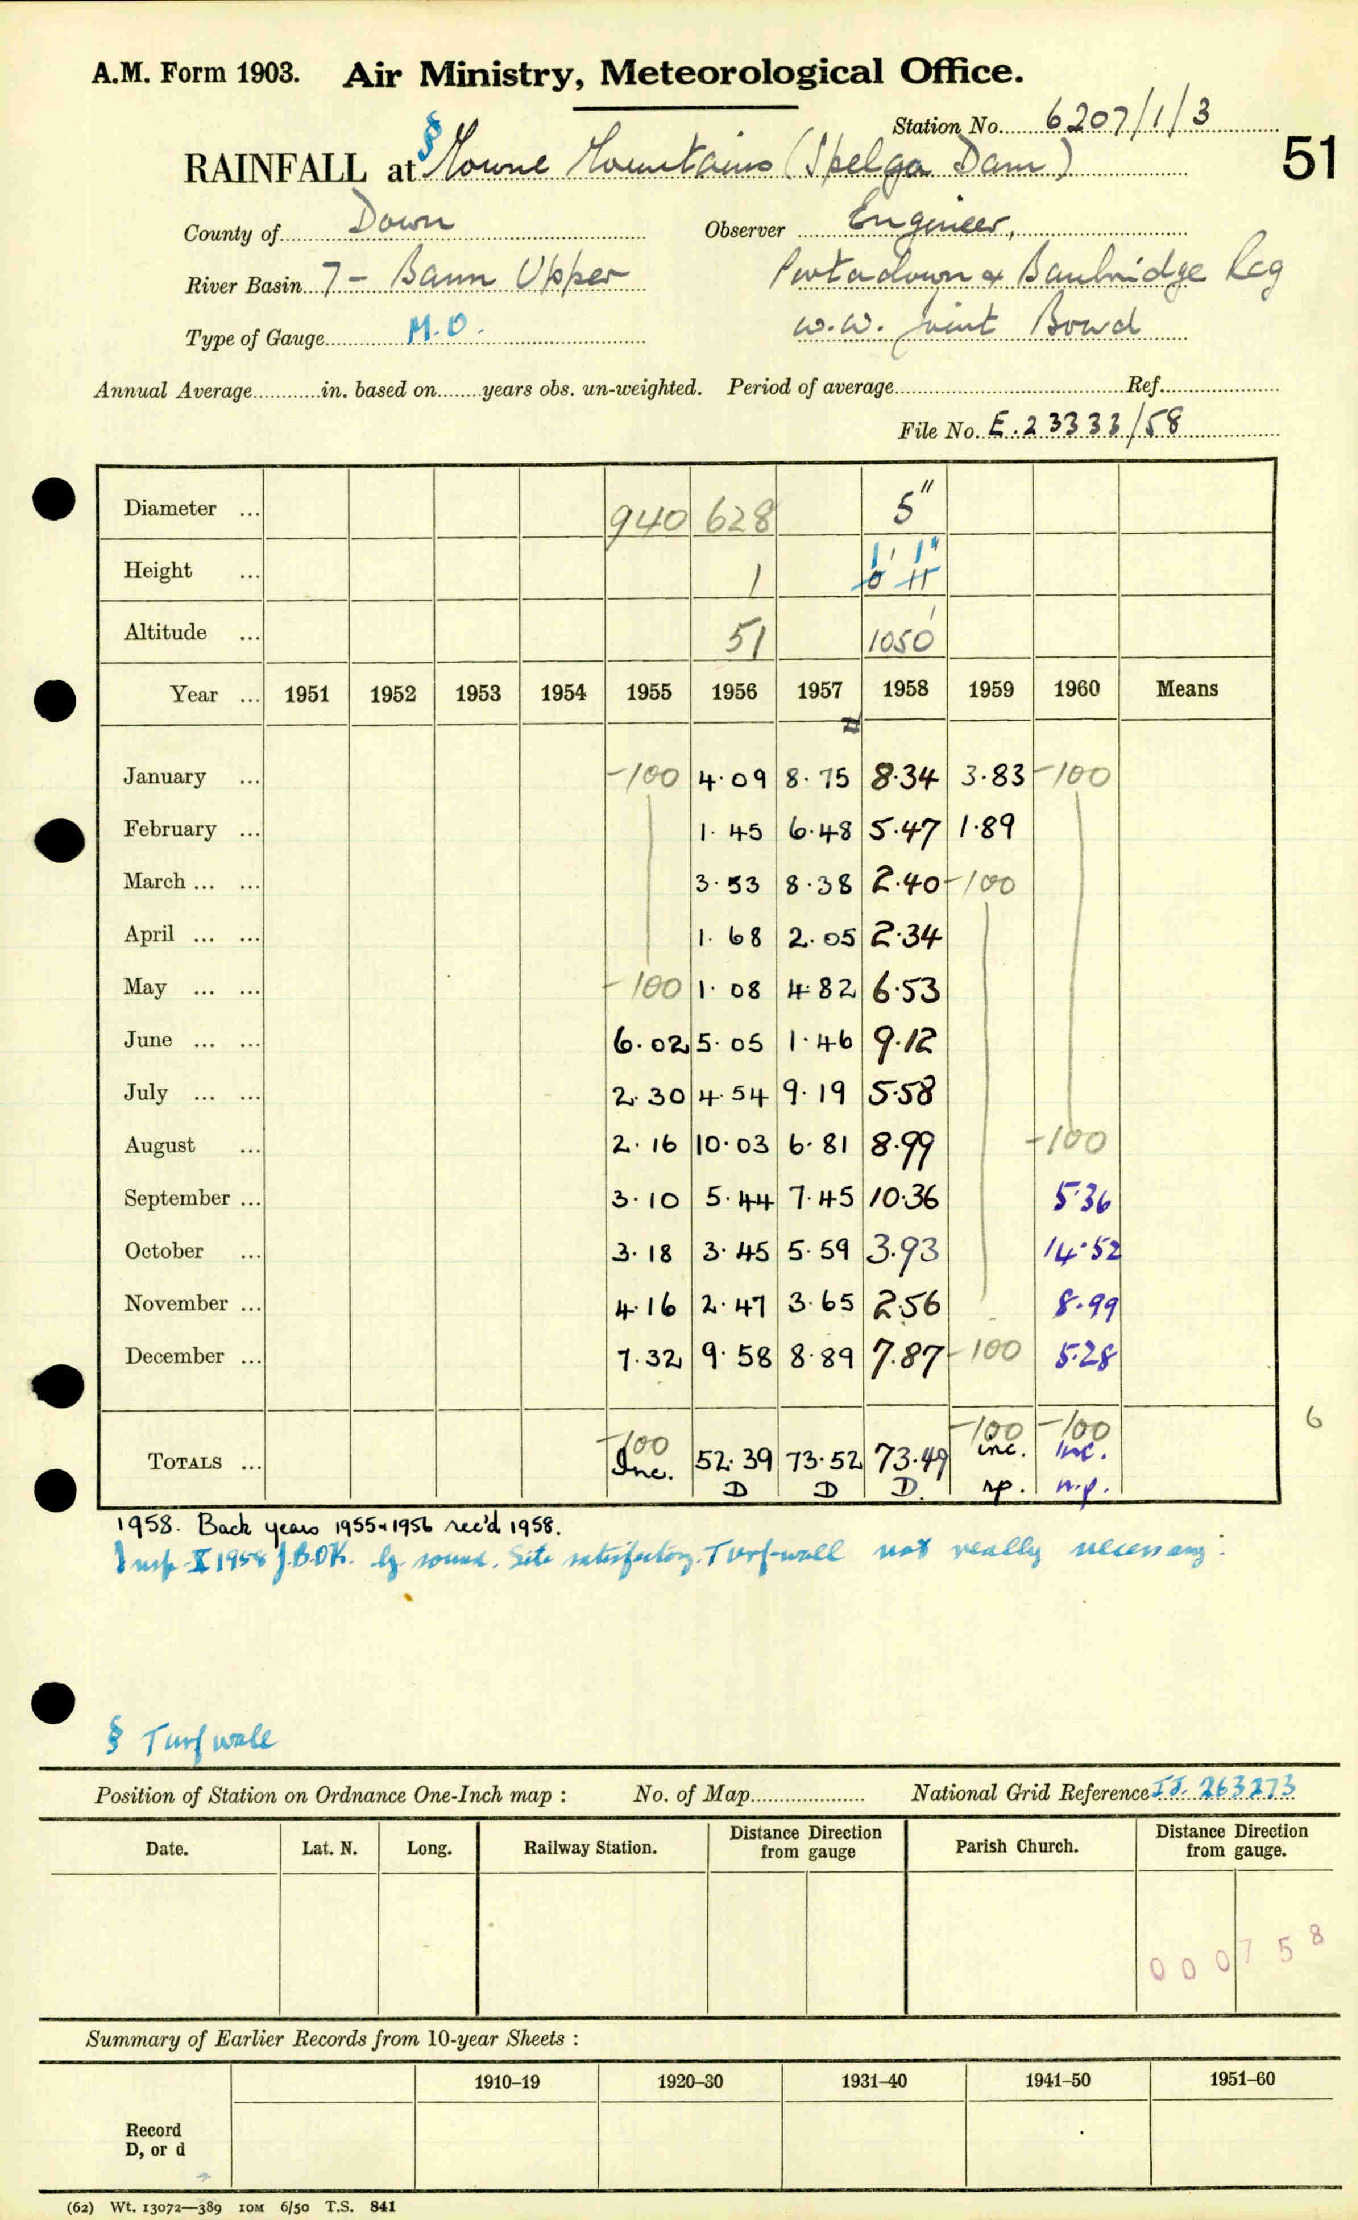 A.M. Form 1903. Air Ministry, Meteorological Office.
Station No. 6207/1/3
51
RAINFALL at § Mourne Mountains (Spelga Dam)
County of Down Observer Engineer,
River Basin 7 - Bann Upper Portadown & Banbridge Reg
Type of Gauge M.O. W.W. Joint Board
Annual Average in. based on years obs. un-weighted. Period of average Ref.
File No. E.23333/58
Diameter ... 940 628 5"
Height ... 1 1' 1" 0 11
Altitude ... 51 1050'
Year ... 1951 1952 1953 1954 1955 1956 1957 1958 1959 1960 Means
January ... -100 4.09 8.75 8.34 3.83 -100
February ... 1.45 6.48 5.47 1.89
March ... ... 3.53 8.38 2.40 -100
April ... ... 1.68 2.05 2.34
May ... ... -100 1.08 4.82 6.53
June ... ... 6.02 5.05 1.46 9.12
July ... ... 2.30 4.54 9.19 5.58
August ... 2.16 10.03 6.81 8.99 -100
September ... 3.10 5.44 7.45 10.36 5.36
October ... 3.18 3.45 5.59 3.93 14.52
November ... 4.16 2.47 3.65 2.56 8.99
December ... 7.32 9.58 8.89 7.87 -100 5.28
-100 -100 -100 6
TOTALS ... Inc. 52.39 73.52 73.49 inc. inc.
D D D. np. n.p.
1958. Back years 1955 & 1956 rec'd 1958.
Insp. X 1958 J.B.OK. Eq. sound. Site satisfactory. Turf-wall not really necessary.
§ Turf wall
Position of Station on Ordnance One-Inch map : No. of Map National Grid Reference IJ. 263273
Date. Lat. N. Long. Railway Station. Distance Direction from gauge Parish Church. Distance Direction from gauge.
000758
Summary of Earlier Records from 10-year Sheets :
1910–19 1920–30 1931–40 1941–50 1951–60
Record
D, or d
(62) Wt. 13072—389 10M 6/50 T.S. 841